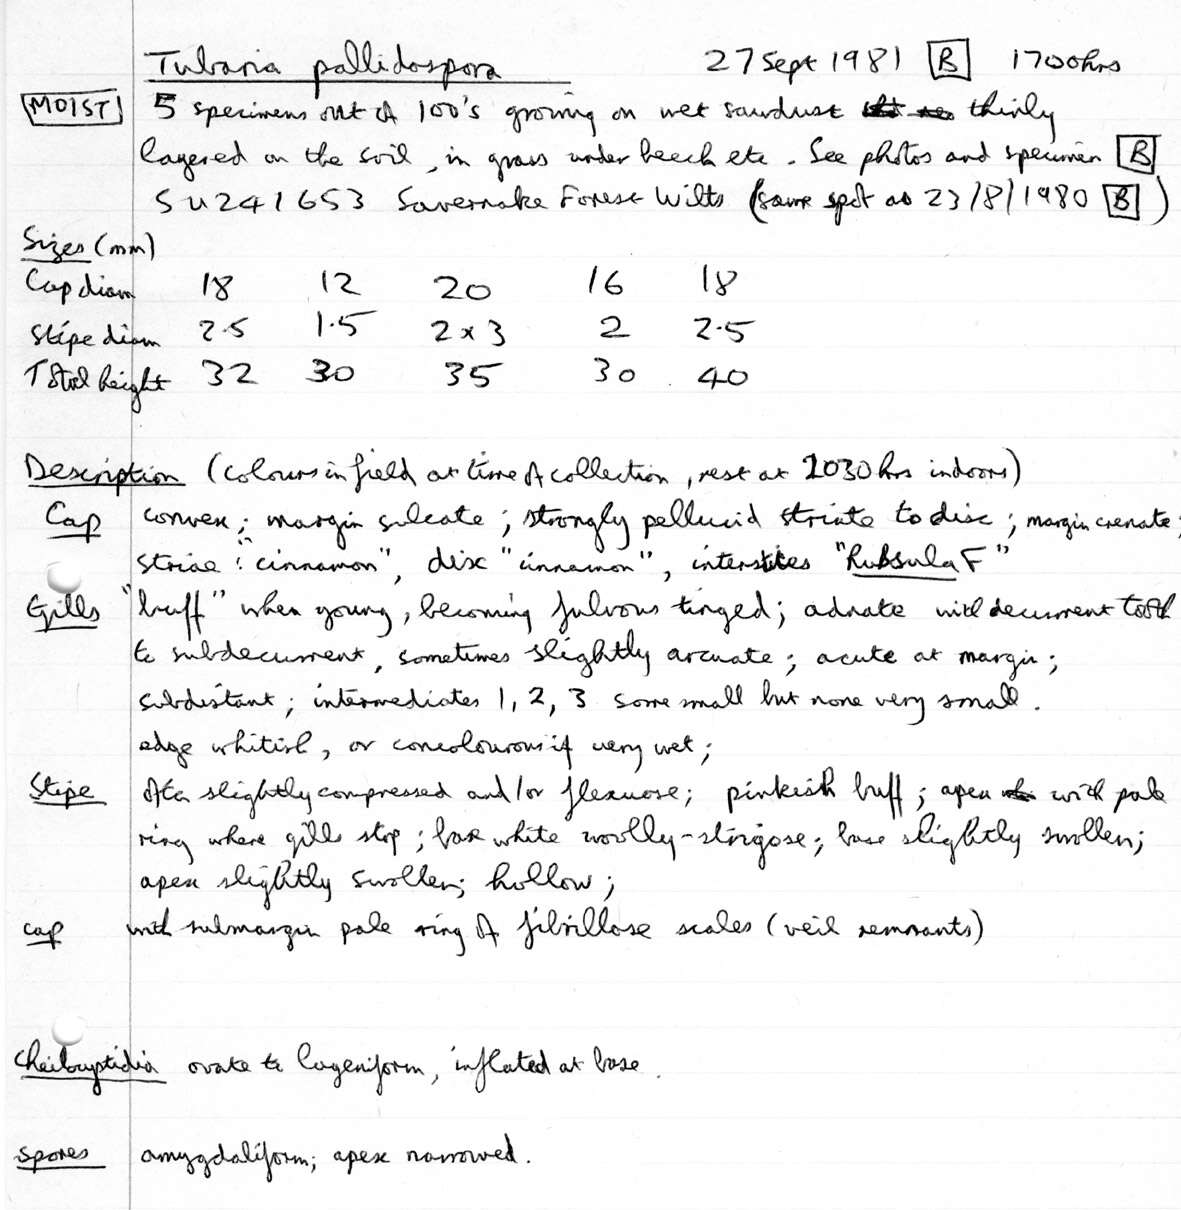 Tubaria pallidospora 27 Sept 1981 B 1700hrs
MOIST 5 specimens out of 100's growing on wet sawdust thinly
layered on the soil, in grass under beech etc. See photos and specimen B
SU241653 Savernake Forest Wilts (same spot as 23/8/1980 B)
Sizes (mm)
Cap diam 18 12 20 16 18
Stipe diam 2.5 1.5 2x3 2 2.5
Total height 32 30 35 30 40
Description (colours in field at time of collection, rest at 2030hrs indoors)
Cap convex; margin sulcate; strongly pellucid striate to disc; margin crenate;
striae: "cinnamon", disc "cinnamon", interstices "
Gills "buff" when young, becoming fulvous tinged; adnate with decurrent tooth
to subdecurrent, sometimes slightly arcuate; acute at margin;
subdistant; intermediates 1, 2, 3 some small but none very small.
edge whitish, or concolourous if very wet;
Stipe often slightly compressed and/or flexuose; pinkish buff; apex with pale
ring where gills stop; base white woolly-strigose; base slightly swollen;
apex slightly swollen; hollow;
cap with submargin pale ring of fibrillose scales (veil remnants)
Cheilocystidia ovate to lageniform, inflated at base.
Spores amygdaliform; apex narrowed.